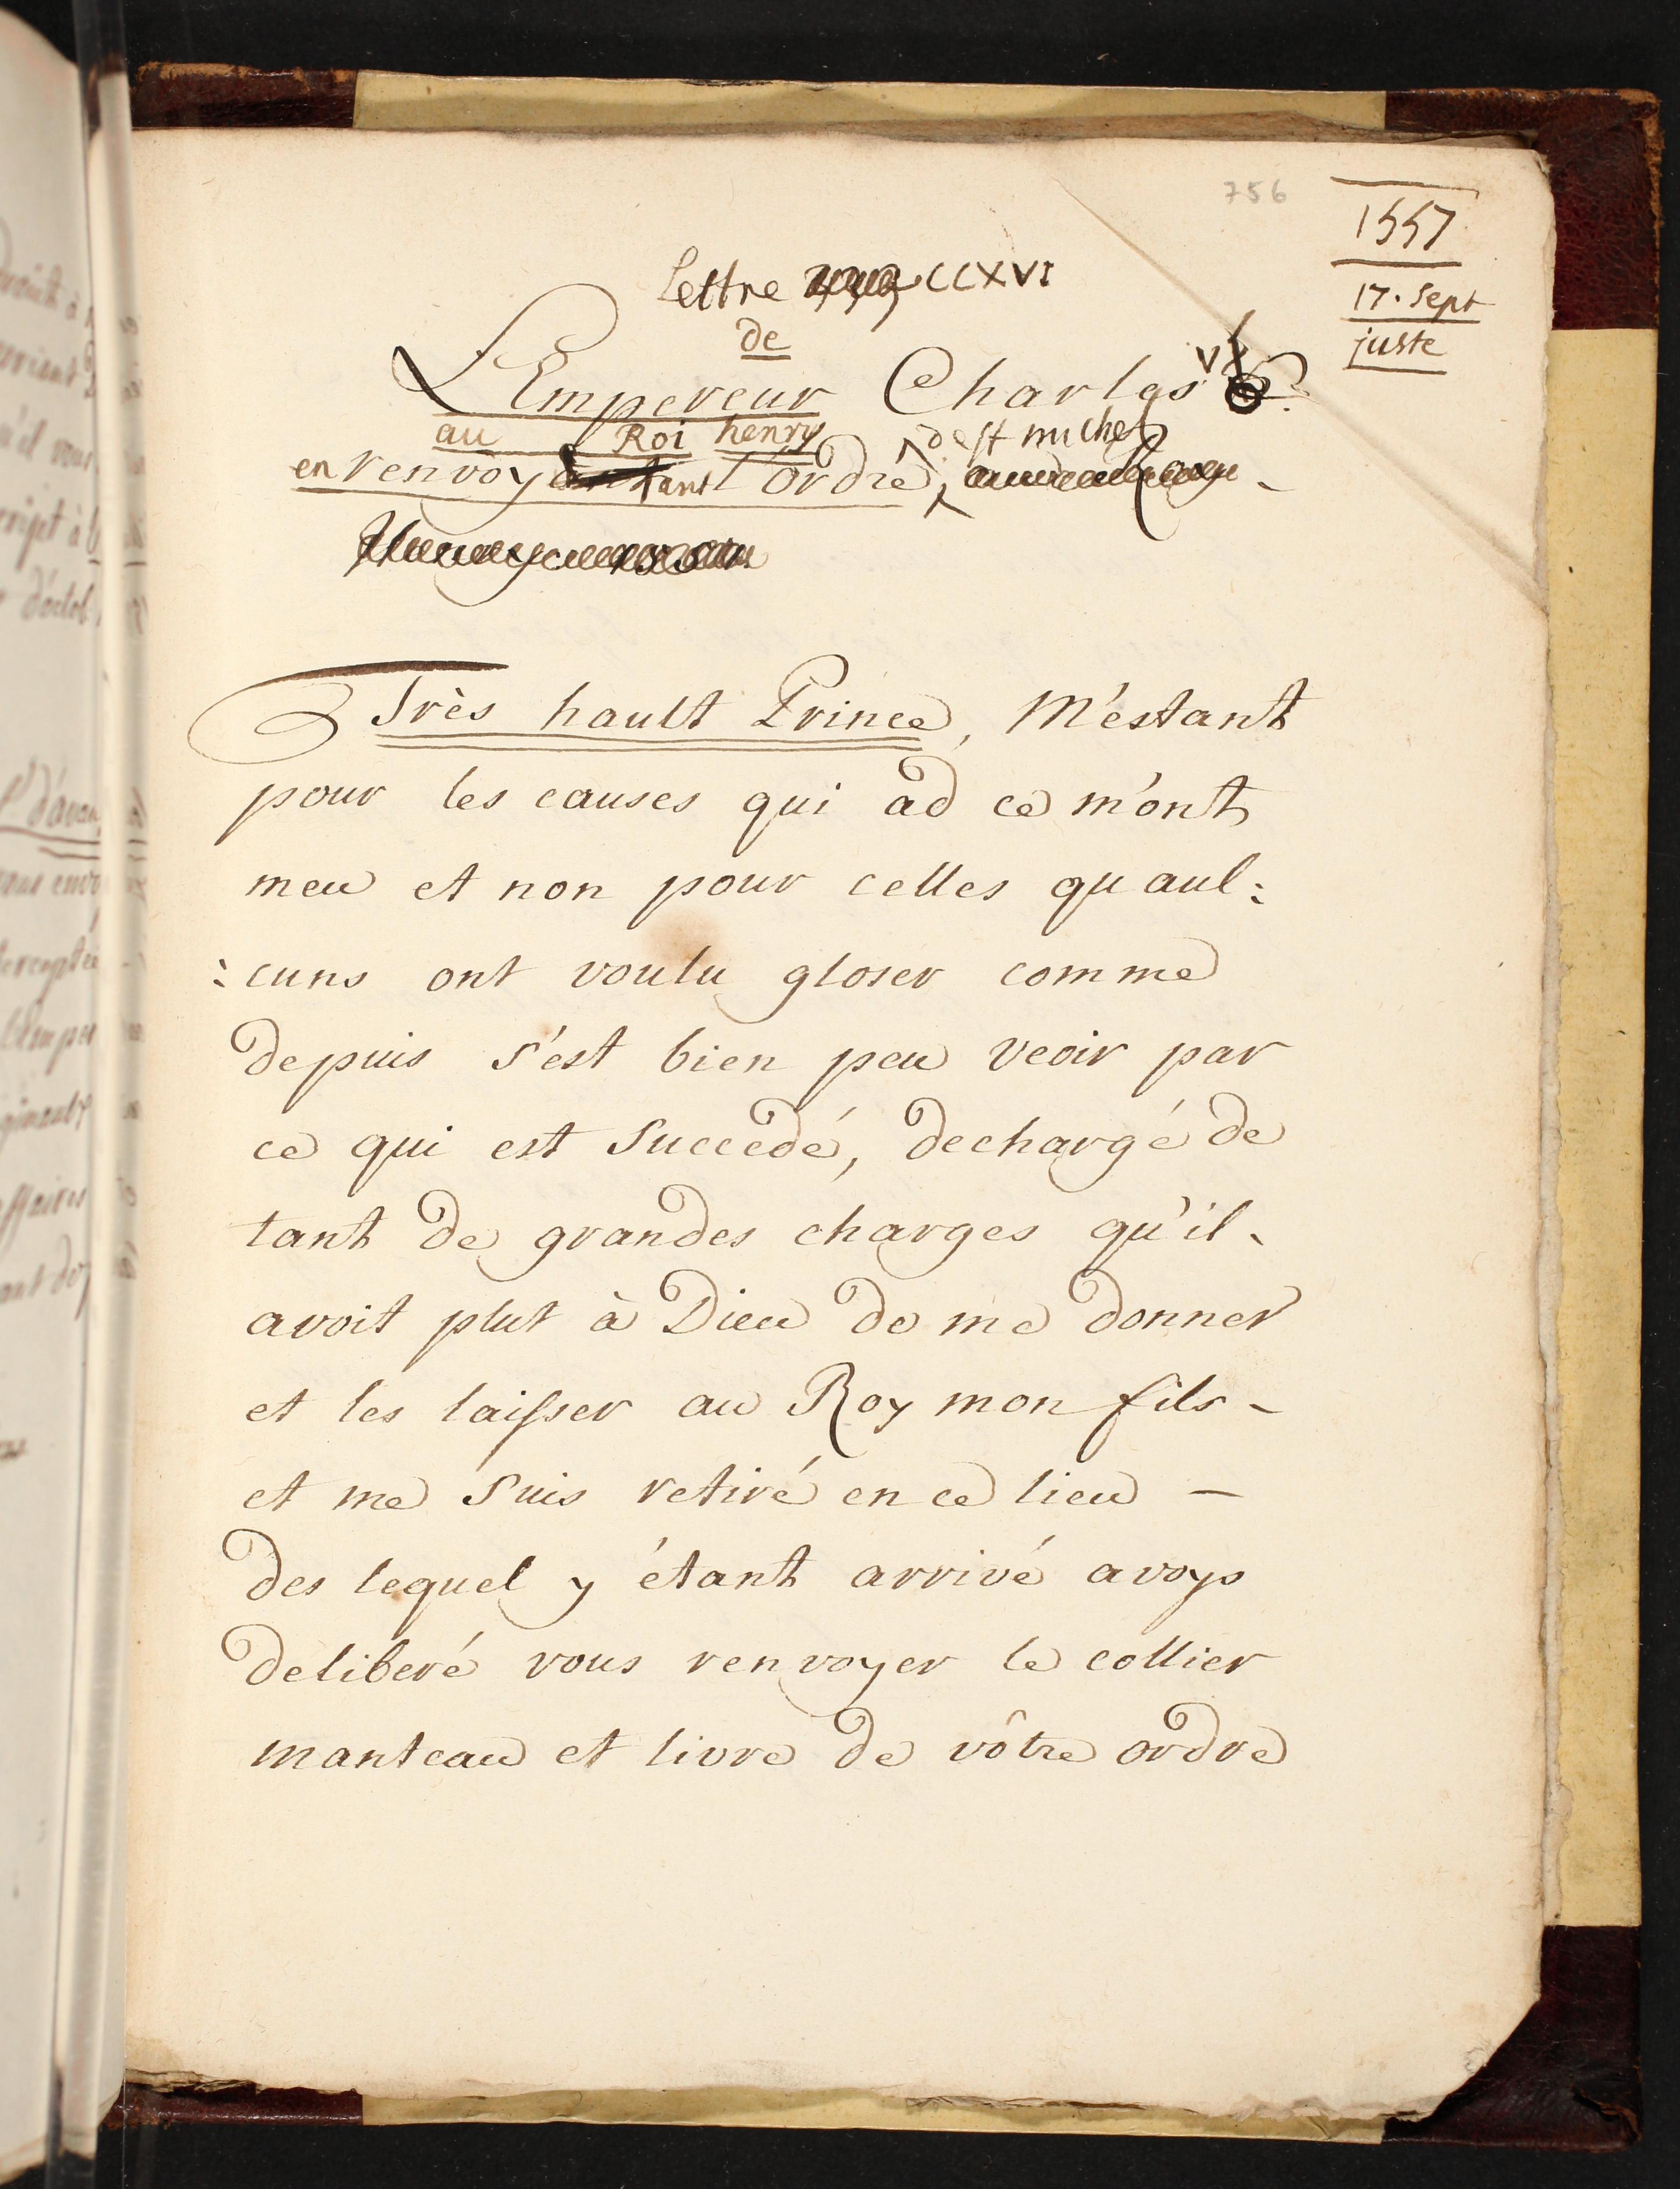 756
1557
17. Sept
juste
Lettre CCXVI
de
L'Empereur Charles V
au Roi henry
en renvoyant l'ordre, de st michel
Très hault Prince, M'éstant
pour les causes qui ad ce m'ont
meu et non pour celles qu aul:
:cuns ont voulu gloser comme
depuis s'est bien peu veoir par
ce qui est Succedé, dechargé de
tant de grandes charges qu'il
avoit plut à Dieu de me donner
et les laisser au Roy mon fils -
et me Suis retiré en ce lieu -
des lequel y étant arrivé avoys
deliberé vous renvoyer le collier
manteau et livre de vôtre ordre